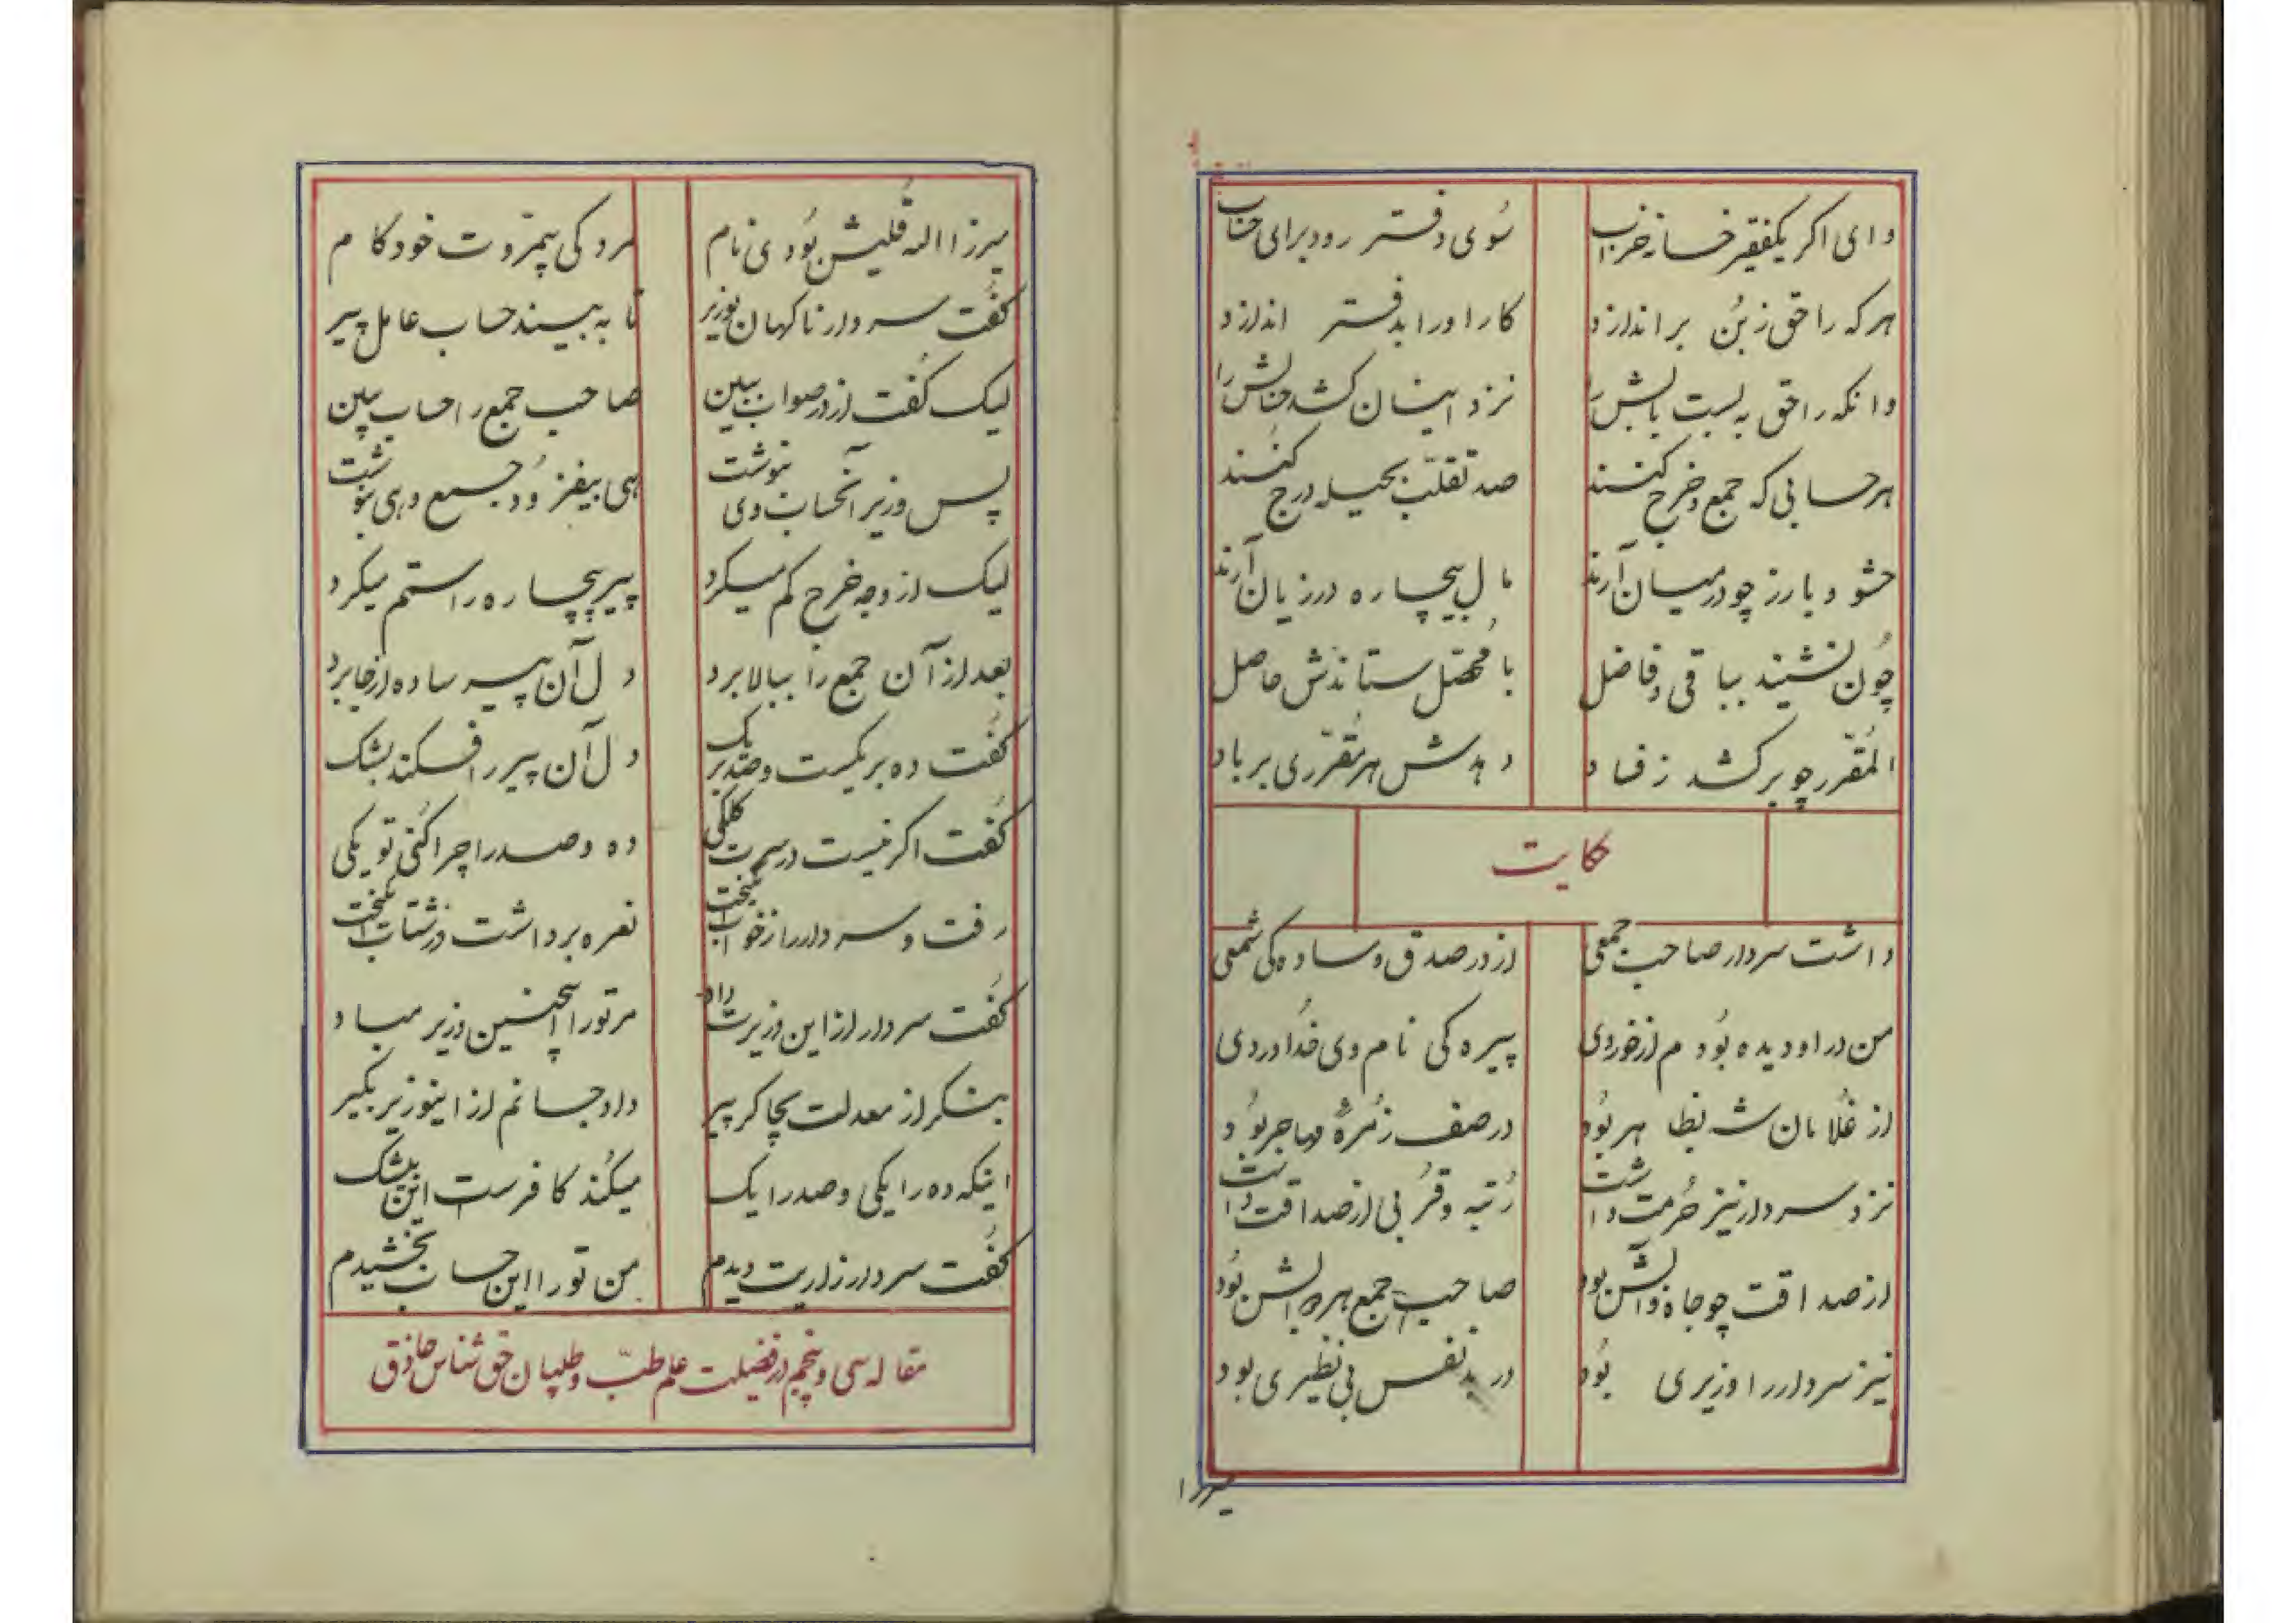 وای اگر یکفقیر خانه خراب سوی دفتر رود برای حساب
هرکه را حق ز بُن براندازد کار او را بدفتر اندازد
وانکه را حق به بست بالش را نزد ایشان کشد حسابش را
هر حسابی که جمع و خرج کنند صد تقلّب بحیله درج کنند
حشو و بارز چو در میان آرند مال بیچاره در زیان آرند
چون نشیند بباقی و فاضل با محصّل ستاندش حاصل
المُقرّر چو برکشد ز فساد دهدش هر مُقرّری بر باد
حکایت
داشت سردار صاحب جمعی از در صدق و ساده‌کی شمعی
من در او دیده بودم از خوردی پیره‌کی نام وی خداوردی
از غُلامان شه بظاهر بود در صف زُمرهٔ مهاجر بود
نزد سردار نیز حُرمت داشت رُتبه و قُربی از صداقت داشت
از صداقت چو جاه و آلش بود صاحب جمع هر والش بود
نیز سردار را وزیری بود در بد نفس بی نظیری بود
میرزا
میرزا الله قلیش بودی نام مردکی بیمرّوت خودکام
گفت سردار ناگهان بوزیر تا به بیند حساب عامل پیر
لیک گفت از در صواب ببین صاحب جمع را حساب ببین
پس وزیر آنحساب وی بنوشت هی بیفزود جمع و هی بنوشت
لیک از وجه خرج کم میکرد پیر بیچاره را ستم میکرد
بعد از آن جمع را ببالا برد دل آن پیر ساده از جا برد
گفت ده بر یکست و صد بر یک دل آن پیر را فکند بشک
گفت اگر نیست در سرت کلکی ده و صد را چرا کنی تو یکی
رفت و سردار را ز خواب انگیخت نعره برداشت در شتاب انگیخت
گفت سردار از این وزیرت داد مر تو را اینچنین وزیر مباد
بنگر از معدلت بچاکر پیر داد جانم از اینوزیر بگیر
اینکه ده را یکی و صد را یک میکُند کافرست این بیشک
گفت سردار زاریت دیدم من تو را این حساب بخشیدم
مقاله سی و پنجم در فضیلت علم طبّ و طبیبان حق شناس حاذق